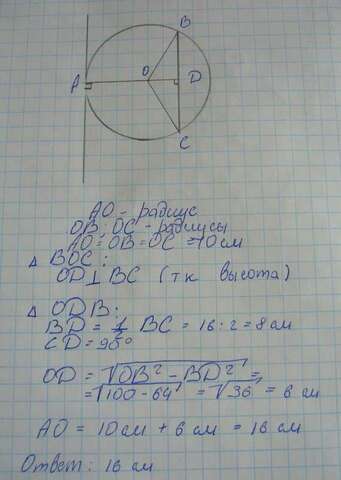 B
A O D
C
AO - радиус
OB; OC - радиусы
AO = OB = OC = 10 см
Δ BOC:
OD ⊥ BC (тк высота)
Δ ODB:
BD = 1/2 BC = 16 : 2 = 8 см
∠D = 90°
OD = √OB² - BD² =
= √100 - 64 = √36 = 6 см
AO = 10 см + 6 см = 16 см
Ответ: 16 см